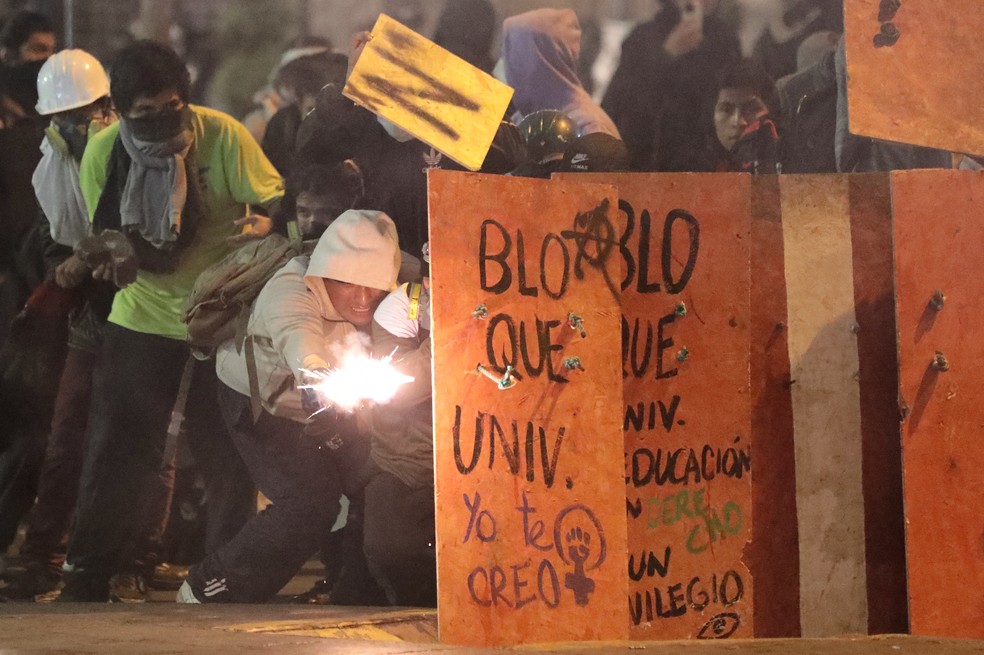 N
BLO
QUE
UNIV.
Yo te
CREO
BLO
QUE
NIV.
EDUCACIÓN
N DERE
CHO
UN
VILEGIO